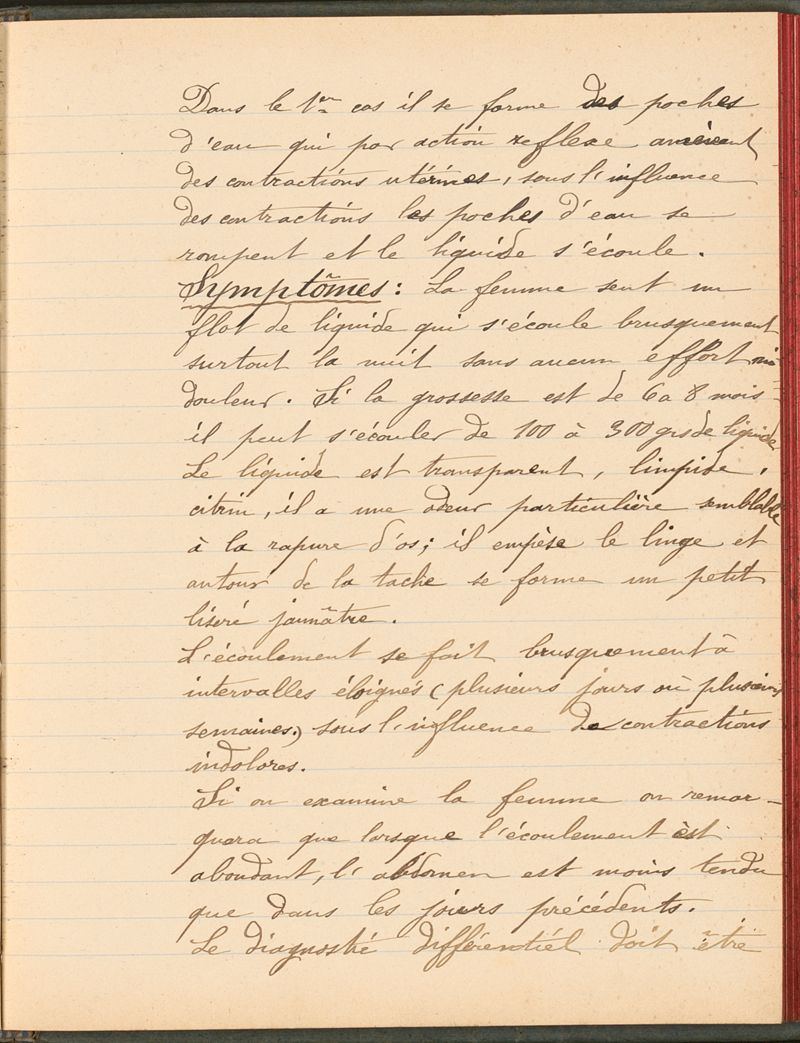 Dans le 1er cas il se forme des poches
d'eau qui par action reflexe amènent
des contractions utérines, sous l'influence
des contractions les poches d'eau se
rompent et le liquide s'écoule.
Symptômes : La femme sent un
flot de liquide qui s'écoule brusquement
surtout la nuit sans aucun effort ni
douleur. Si la grossesse est de 6 a 8 mois
il peut s'écouler de 100 à 300 grs de liquide
Le liquide est transparent, limpide,
citrin, il a une odeur particulière semblable
à la rapure d'os; il empèse le linge et
autour de la tache se forme un petit
liseré jaunâtre.
L'écoulement se fait brusquement à
intervalles éloignés (plusieurs jours où plusieurs
semaines.) sous l'influence de contractions
indolores.
Si on examine la femme on remar-
quera que lorsque l'écoulement est
abondant, l'abdomen est moins tendu
que dans les jours précédents.
Le diagnostic différentiel doit être